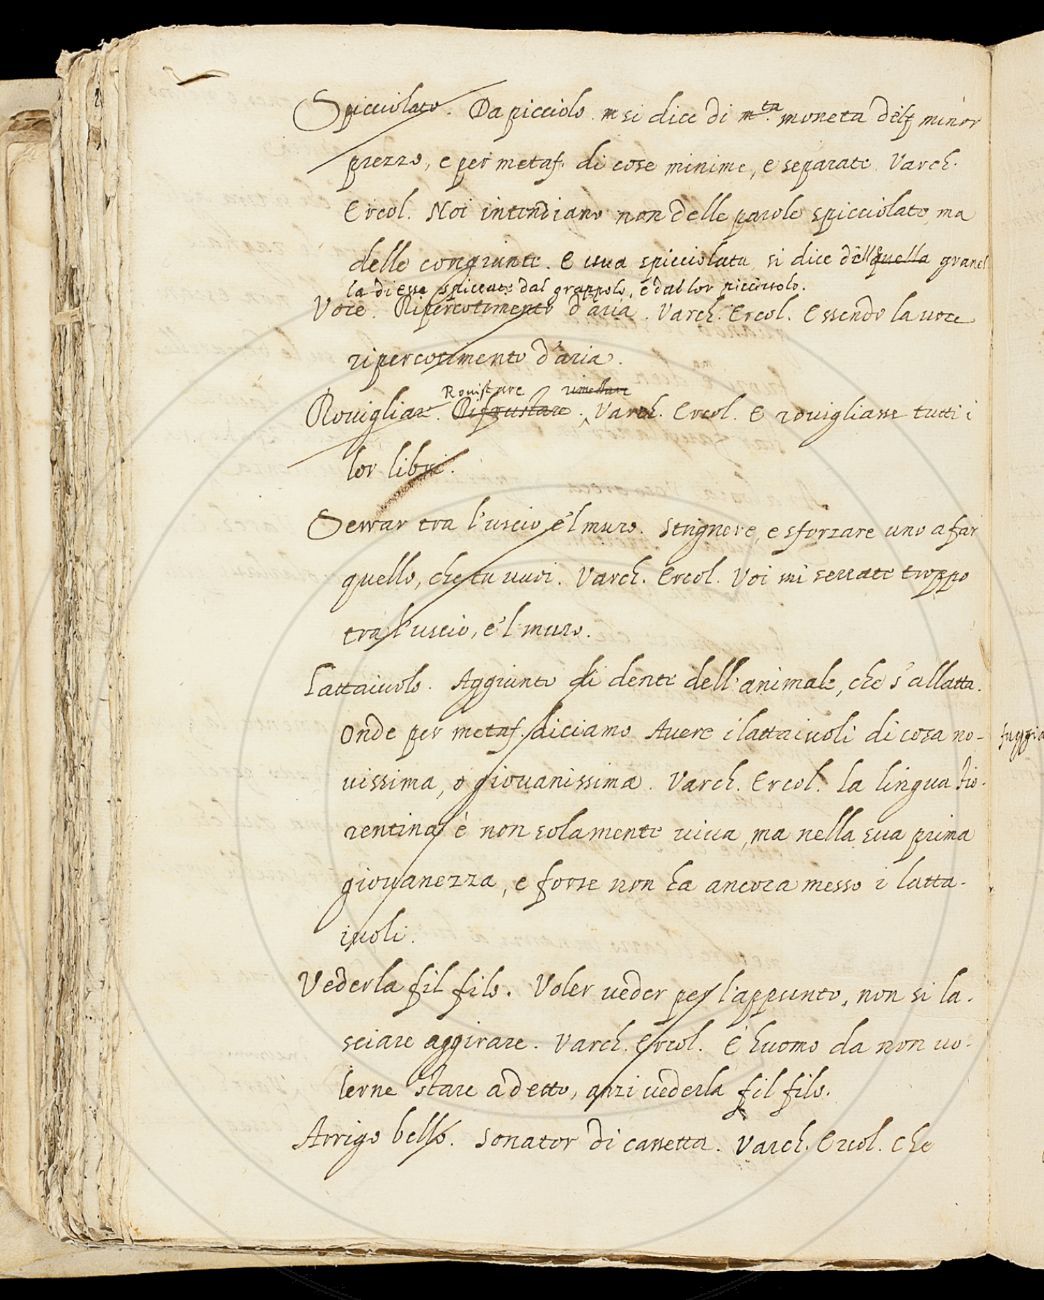 Spicciolato. Da picciolo si dice di m.ta moneta del minor
prezzo, e per metaf. di cose minime, e separate. Varch.
Ercol. Noi intendiano non delle parole spicciolate, ma
delle congiunte. E uua spicciolata si dice dell quella granel
la di esse spiccate dal grappolo, e dal lor picciuolo.
Voce. Ripercotimento d'aria. Varch. Ercol. Essendo la uoce
ripercotimento d'aria.
Rouistare rimestare
Rouigliar. Rifrustare. Varch. Ercol. E rouigliasse tutti i
lor libri.
Serrar tra l'uscio, e'l muro. Strignere, e sforzare uno a far
quello, che tu uuoi. Varch. Ercol. Voi mi serrate troppo
tra l'uscio, e'l muro.
Lattaiuolo. Aggiunto di dente dell'animale, che s'allatta.
Onde per metaf. diciamo Auere i lattaiuoli di cosa no-
uissima, o giouanissima. Varch. Ercol. la lingua fio-
rentina è non solamente uiua, ma nella sua prima
giouanezza, e forse non ha ancora messo i latta-
iuoli.
Vederla fil filo. Voler ueder per l'appunto, non si la-
sciare aggirare. Varch. Ercol. E huomo da non uo-
lerne stare a detto, anzi uederla fil filo.
Arrigo bello. Sonator di cassetta. Varch. Ercol. che